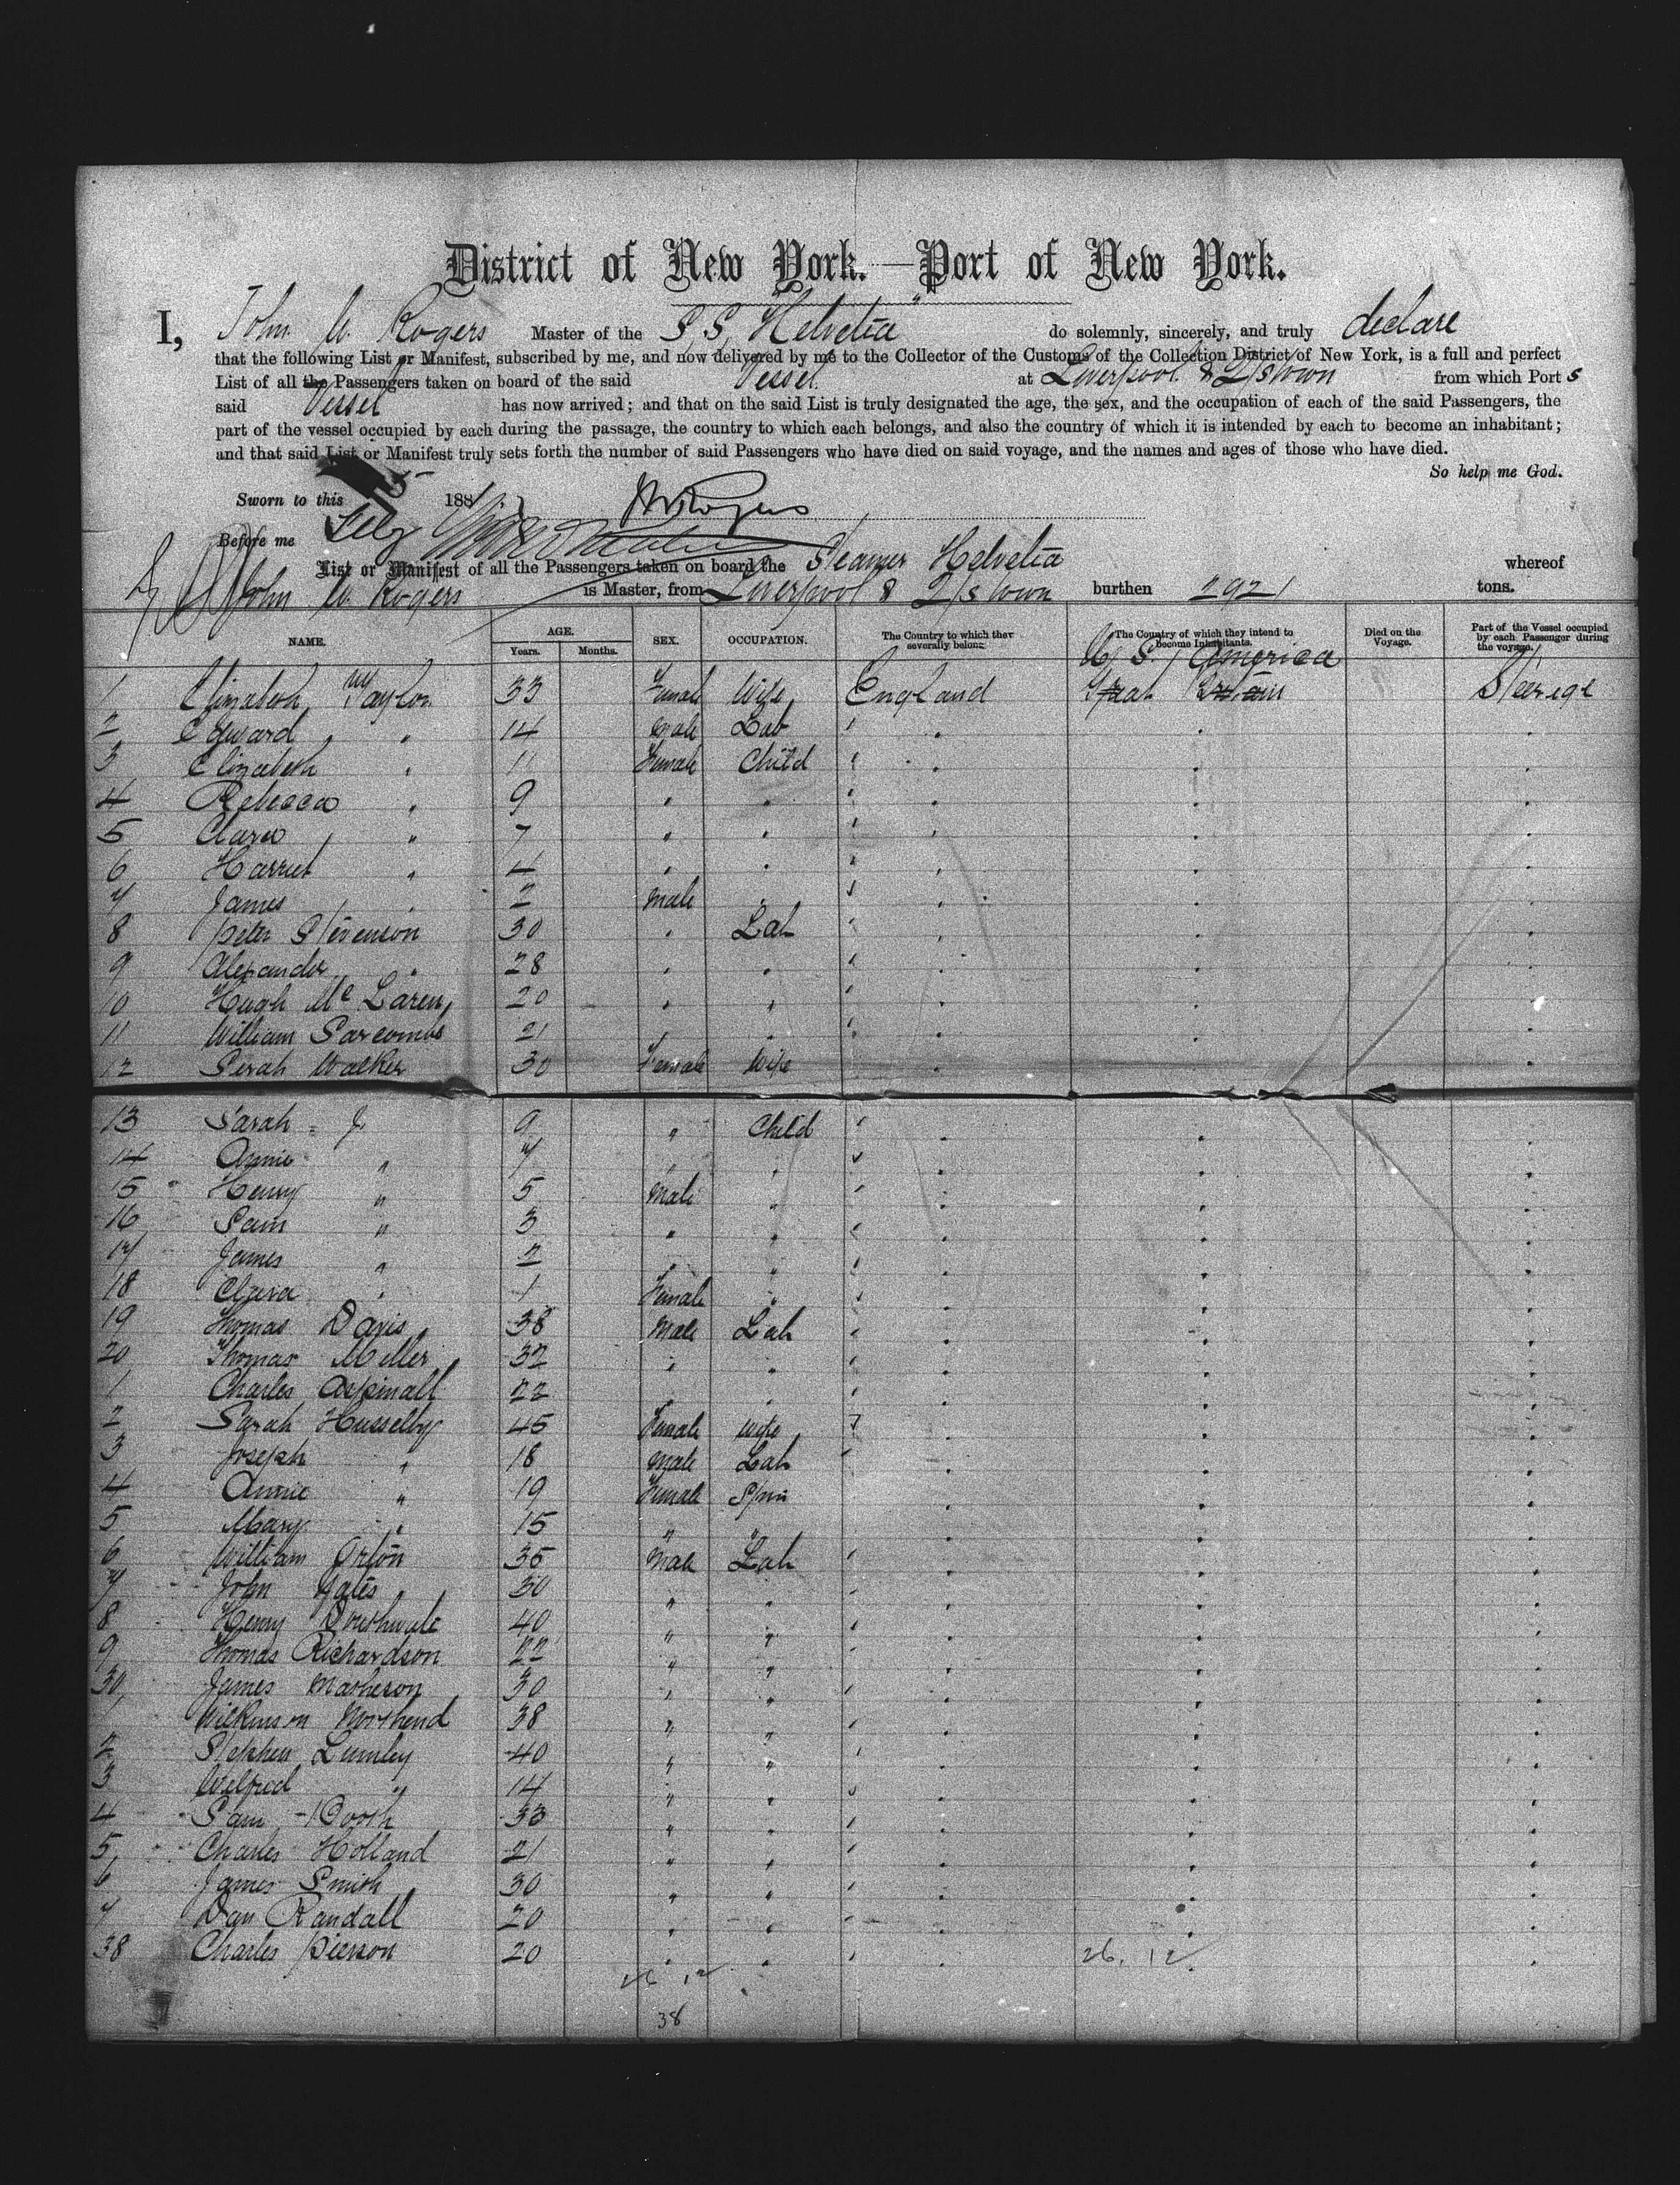 District of New York.—Port of New York.
I, John W Rogers Master of the S,S, "Helvetia" do solemnly, sincerely, and truly declare
that the following List or Manifest, subscribed by me, and now delivered by me to the Collector of the Customs of the Collection District of New York, is a full and perfect
List of all the Passengers taken on board of the said Vessel at Liverpool & Q/stown from which Port s
said Vessel has now arrived; and that on the said List is truly designated the age, the sex, and the occupation of each of the said Passengers, the
part of the vessel occupied by each during the passage, the country to which each belongs, and also the country of which it is intended by each to become an inhabitant;
and that said List or Manifest truly sets forth the number of said Passengers who have died on said voyage, and the names and ages of those who have died.
So help me God.
Sworn to this 5 188
Before me
List or Manifest of all the Passengers taken on board the Steamer Helvetia whereof
John W. Rogers is Master, from Liverpool & Q/stown burthen 2921 tons.
NAME. AGE. Years. Months. SEX. OCCUPATION. The Country to which they severally belong. The Country of which they intend to become Inhabitants. Died on the Voyage. Part of the Vessel occupied by each Passenger during the voyage.
U, S, America
1 Elizabeth Taylor 33 Female Wife England Great Britain Steerage
2 Edward " 14 Male Lab " " " "
3 Elizabeth " 11 Female Child " " " "
4 Rebecca " 9 " " " " " "
5 Clara " 7 " " " " " "
6 Harriet " 4 " " " " " "
7 James " 2 Male " " " " "
8 Peter Stevenson 30 " Lab " " " "
9 Alexander " 28 " " " " " "
10 Hugh Mc Laren 20 " " " " " "
11 William Sarcombe 21 " " " " " "
12 Sarah Walker 30 Female Wife " " "
13 Sarah " J 9 " Child " " " "
14 Annie " 7 " " " " " "
15 Henry " 5 Male " " " " "
16 Sam " 3 " " " " " "
17 James " 2 " " " " " "
18 Clara " 1 Female " " " " "
19 Thomas Davis 38 Male Lab " " " "
20 Thomas Miller 32 " " " " " "
1 Charles Aspinall 22 " " " " " "
2 Sarah Husselby 45 Female Wife " " " "
3 Joseph " 18 Male Lab " " " "
4 Annie " 19 Female Spin " " "
5 Mary " 15 " " " " "
6 William Orton 35 Male Lab " " " "
7 John Yates 30 " " " " " "
8 Henry 40 " " " " " "
9 Thomas Richardson 22 " " " " " "
30 James Matheson 30 " " " " " "
1 Wilkinson Northend 38 " " " " " "
2 Stephen Lumley 40 " " " " " "
3 Wilfred " 14 " " " " " "
4 Sam Booth 33 " " " " " "
5 Charles Holland 21 " " " " " "
6 James Smith 30 " " " " " "
7 Dan Randall 20 " " " " " "
38 Charles Pierson 20 " " " " 26. 12 "
26 12
38